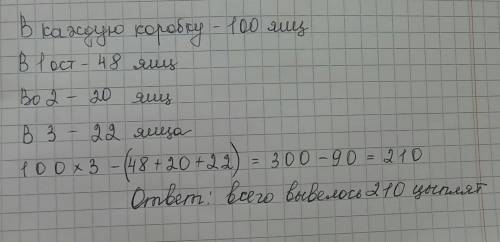 В каждую коробку - 100 яиц
В 1 ост - 48 яиц
Во 2 - 20 яиц
В 3 - 22 яйца
100 x 3 - (48 + 20 + 22) = 300 - 90 = 210
Ответ: всего вывелось 210 цыплят